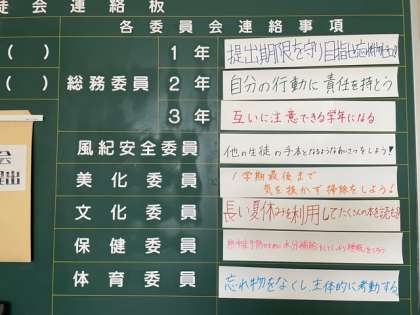 徒会連絡板
各委員会連絡事項
( )
( )
総務委員
1年 提出期限を守り目指せ忘れ物ゼロ
2年 自分の行動に責任を持とう
3年 互いに注意できる学年になる
風紀安全委員 他の生徒の手本となるようなあいさつをしよう!
美化委員 1学期最後まで
気を抜かず掃除をしよう!
文化委員 長い夏休みを利用してたくさんの本を読もう
保健委員 熱中症予防のために水分補給をしっかり
体育委員 忘れ物をなくし、主体的に考動する
提出